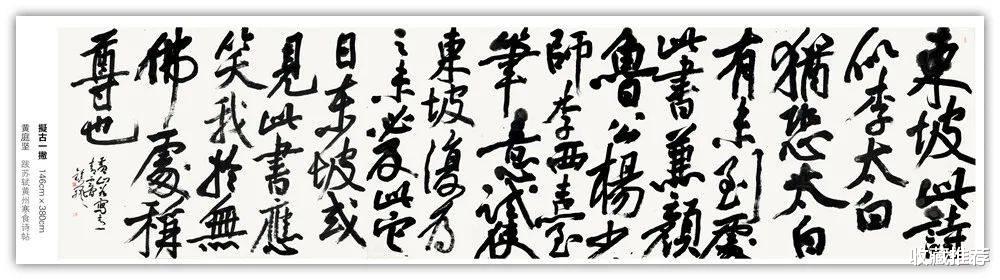 東坡此詩
似李太白
猶恐太白
有未到處
此書兼顏
魯公楊少
師李西臺
筆意試使
東坡復為
之未必及此它
日東坡或
見此書應
笑我於無
佛處稱
尊也
擬古一撇 146cm×380cm
黄庭坚 跋苏轼黄州寒食诗帖
收藏推荐